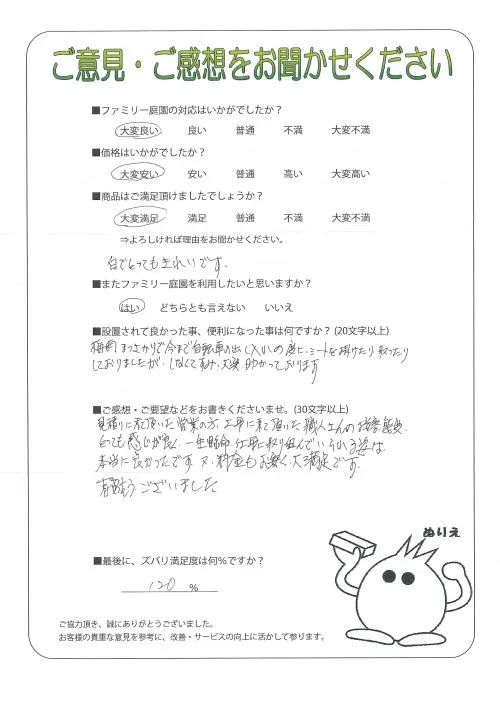 ご意見・ご感想をお聞かせください
■ファミリー庭園の対応はいかがでしたか？
大変良い 良い 普通 不満 大変不満
■価格はいかがでしたか？
大変安い 安い 普通 高い 大変高い
■商品はご満足頂けましたでしょうか？
大変満足 満足 普通 不満 大変不満
⇒よろしければ理由をお聞かせください。
白でとってもきれいです．
■またファミリー庭園を利用したいと思いますか？
はい どちらとも言えない いいえ
■設置されて良かった事、便利になった事は何ですか？（20文字以上）
で今まで自転車の出し入れの度に、シートを掛けたり、取ったり
しておりましたが、しなくてすみ、大変、助かっております
■ご感想・ご要望などをお書きくださいませ。（30文字以上）
見積りに来て頂いた営業の方、工事に来て頂いた職人さんの接客態度、
とっても感じが良く、一生懸命 仕事に取り組んでいらっしゃる姿は
本当に良かったです 又、料金もお安く、大満足です．
有難うございました
■最後に、ズバリ満足度は何％ですか？
120 ％
ぬりえ
ご協力頂き、誠にありがとうございました。
お客様の貴重な意見を参考に、改善・サービスの向上に活かして参ります。